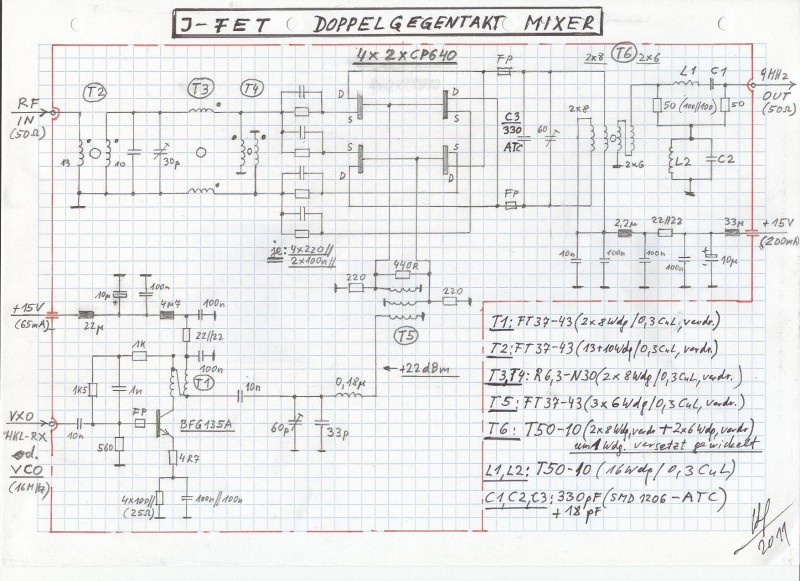 J-FET DOPPELGEGENTAKT MIXER
4x 2xCP640
RF
IN
(50Ω)
T2
13
10
30p
T3
T4
D
D
S
S
S
S
D
D
je: 4x220//
2x100n//
FP
C3
330
ATC
60
FP
2x8
T6
2x6
2x8
2x6
L1
C1
50
(100//100)
50
L2
C2
9MHz
OUT
(50Ω)
2,2µ
22//22
33µ
+15V
(200mA)
10n
100n
100n
100n
10µ
220
440R
220
T5
+22dBm
+15V
(65mA)
22µ
10µ
100n
4µ7
100n
22//22
100n
1K
1K5
1n
T1
10n
0,18µ
60p
33p
VXO
HKL-RX
od.
VCO
(16MHz)
10n
FP
BFG135A
560
4R7
4x100//
(25Ω)
100n//100n
T1: FT37-43 (2x8Wdg/0,3CuL, verdr.)
T2: FT37-43 (13+10Wdg/0,3CuL, verdr.)
T3,T4: R6,3-N30 (2x8Wdg/0,3CuL, verdr.)
T5: FT37-43 (3x6Wdg/0,3CuL, verdr.)
T6: T50-10 (2x8Wdg, verdr + 2x6Wdg, verdr)
um 1 Wdg. versetzt gewickelt
L1,L2: T50-10 (16Wdg/0,3CuL)
C1,C2,C3: 330pF (SMD 1206-ATC)
+18pF
2011